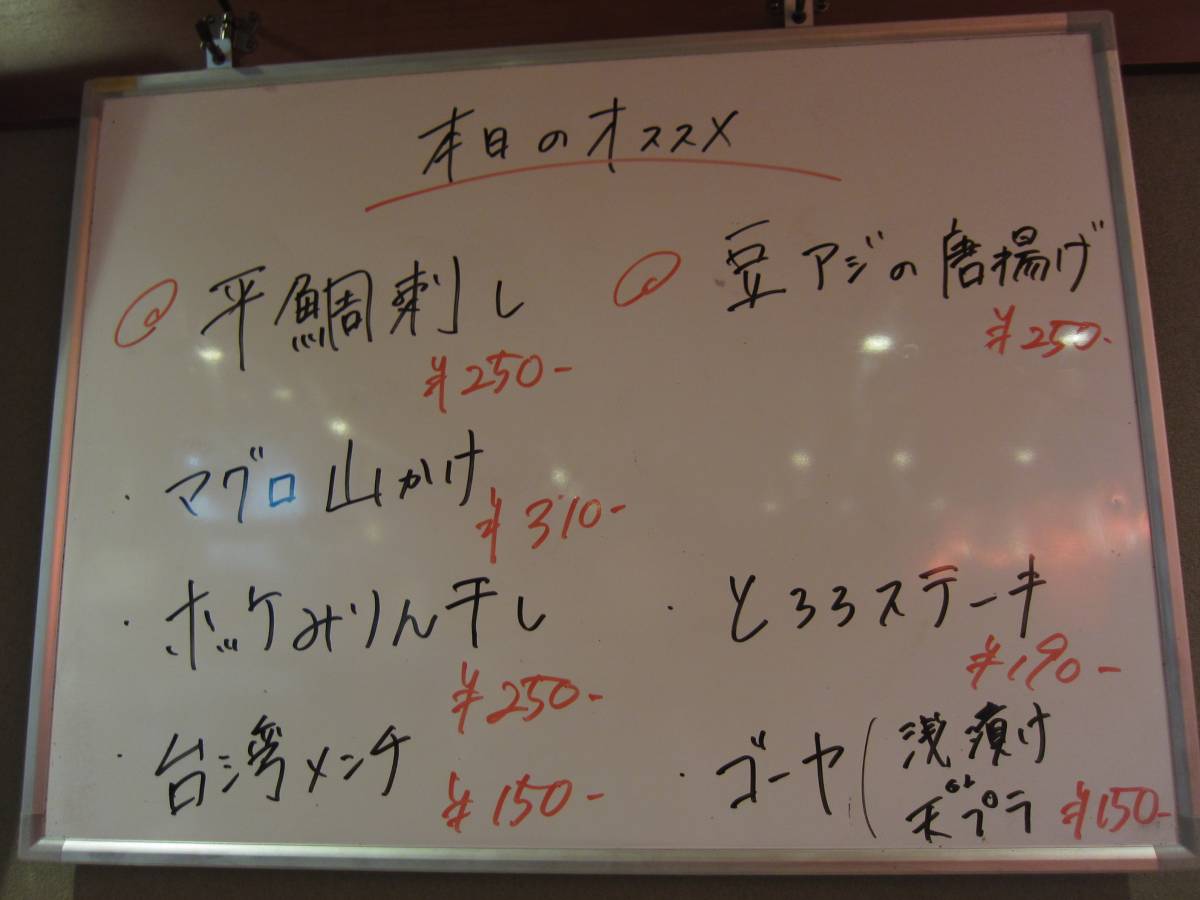 本日のオススメ
◎ 平鯛刺し
¥250-
・マグロ山かけ
¥310-
・ホッケみりん干し
¥250-
・台湾メンチ
¥150-
◎ 豆アジの唐揚げ
¥250-
・とろろステーキ
¥190-
・ゴーヤ(浅漬け
天プラ ¥150-